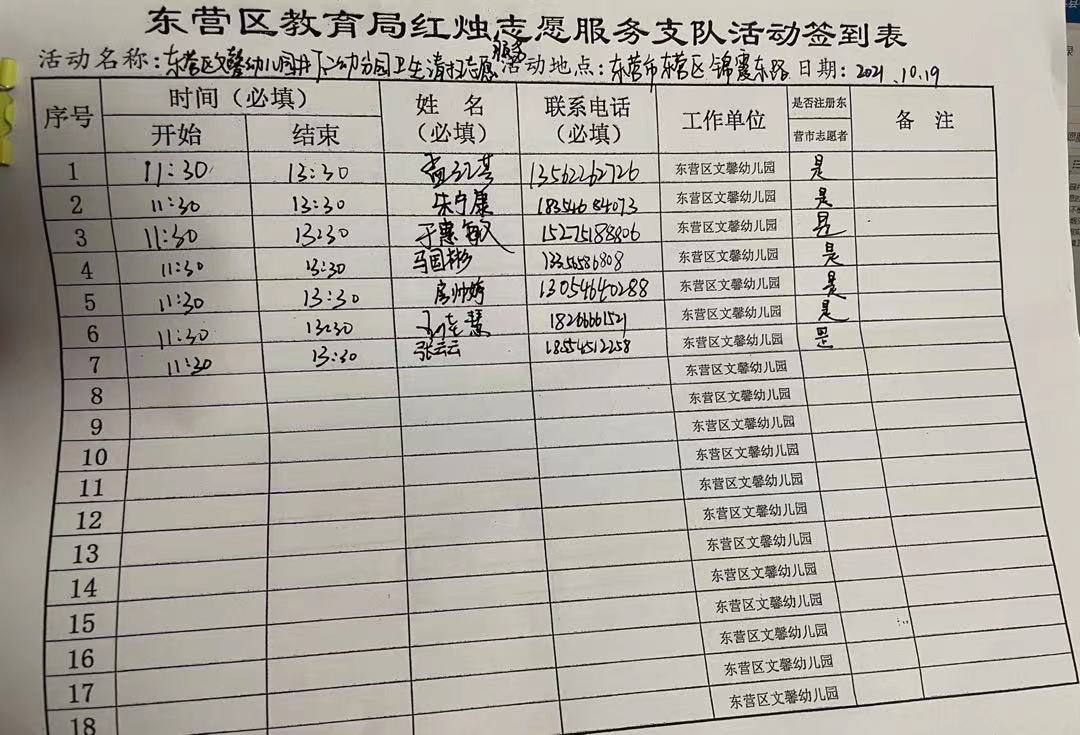 东营区教育局红烛志愿服务支队活动签到表
活动名称：东营区文馨幼儿园井下运动分园卫生清扫志愿服务 活动地点：东营市东营区锦霞东路 日期：2021.10.19
序号 时间（必填） 姓 名（必填） 联系电话（必填） 工作单位 是否注册东营市志愿者 备 注
开始 结束
1 11:30 13:30 孟红其 13562262726 东营区文馨幼儿园 是
2 11:30 13:30 朱宁康 18354684073 东营区文馨幼儿园 是
3 11:30 13:30 于惠敏 15275188806 东营区文馨幼儿园 是
4 11:30 13:30 马国彬 东营区文馨幼儿园 是
5 11:30 13:30 房帅婷 13054640288 东营区文馨幼儿园 是
6 11:30 13:30 东营区文馨幼儿园 是
7 11:30 13:30 张云云 18554512258 东营区文馨幼儿园 是
东营区文馨幼儿园
8 东营区文馨幼儿园
9 东营区文馨幼儿园
10 东营区文馨幼儿园
11 东营区文馨幼儿园
12 东营区文馨幼儿园
13 东营区文馨幼儿园
14 东营区文馨幼儿园
15 东营区文馨幼儿园
16 东营区文馨幼儿园
17 东营区文馨幼儿园
18 东营区文馨幼儿园